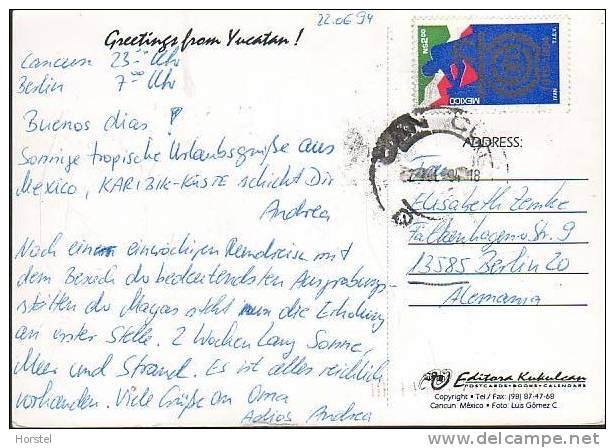 22.06.94
Greetings from Yucatan!
Cancun 23⁰⁰ Uhr
Berlin 7⁰⁰ Uhr
Buenos dias!
Sonnige tropische Urlaubsgrüße aus
Mexico, KARIBIK-KÜSTE schickt Dir
Andrea
Nach einer einwöchigen Rundreise mit
dem Besuch der bedeutendsten Ausgrabungs-
stätten der Mayas steht nun die Erholung
an erster Stelle. 2 Wochen lang Sonne,
Meer und Strand. Es ist alles reichlich
vorhanden. Viele Grüße an Oma
Adios Andrea
N$2.00
MEXICO
ADDRESS:
Frau
Elisabeth Zemke
Falkenhagener Str. 9
13585 Berlin 20
Alemania
Editora Kukulcan
POSTCARDS • BOOKS • CALENDARS
Copyright • Tel / Fax: (98) 87-47-68
Cancun México • Foto: Luis Gómez C
Horstel